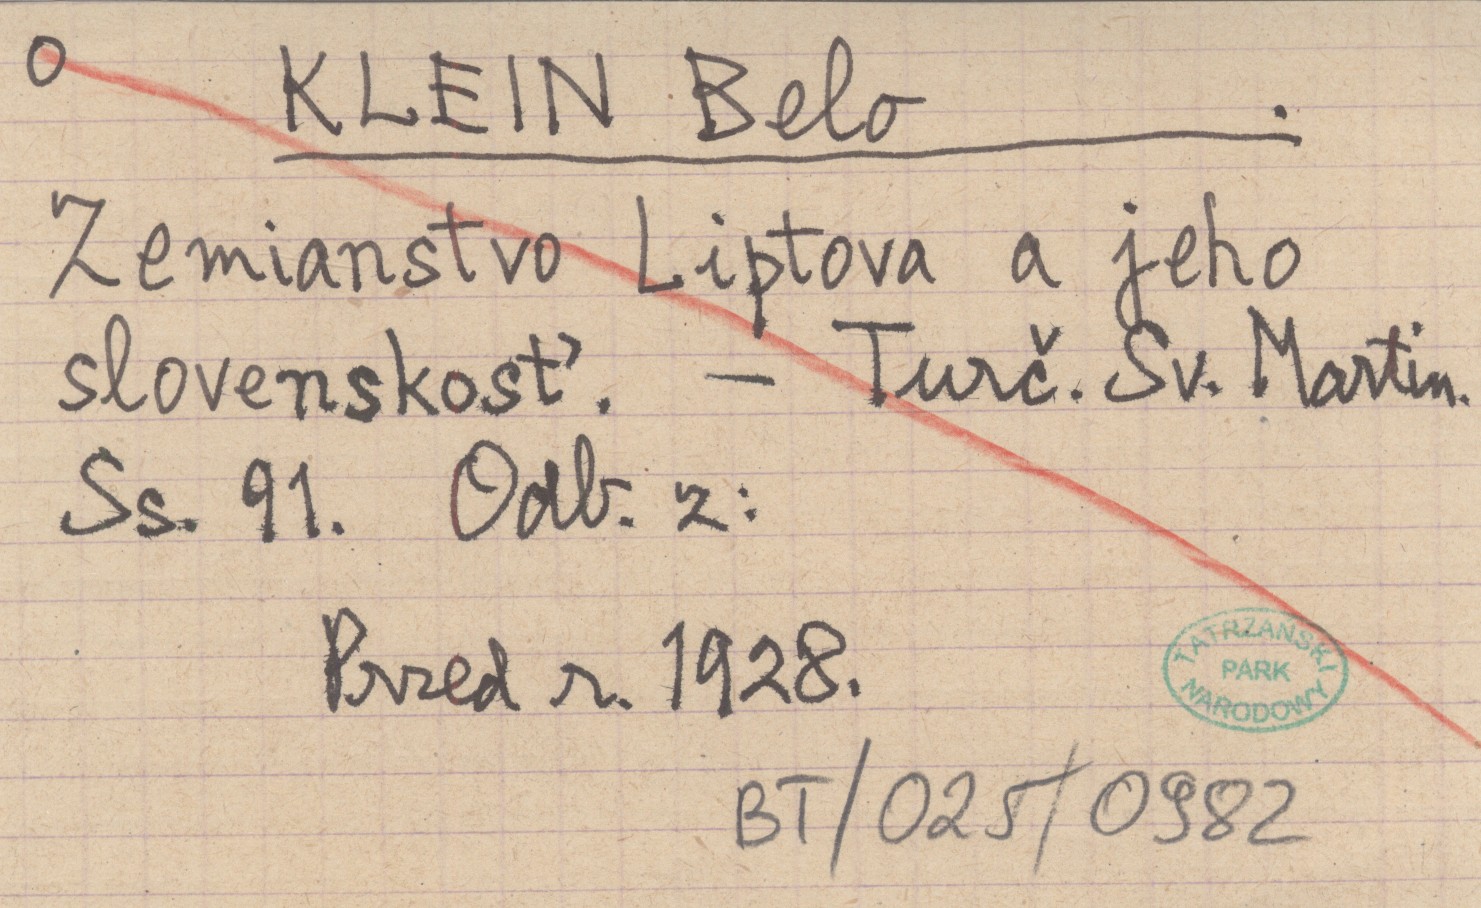 O KLEIN Belo .
Zemianstvo Liptova a jeho
slovenskosť. – Turč. Sv. Martin.
Ss. 91. Odb. z:
Przed r. 1928.
TATRZAŃSKI
PARK
NARODOWY
BT/025/0982